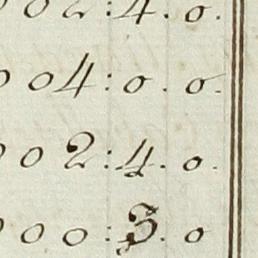 002:4.0.
004:0.0.
002:4.0.
000:3.0